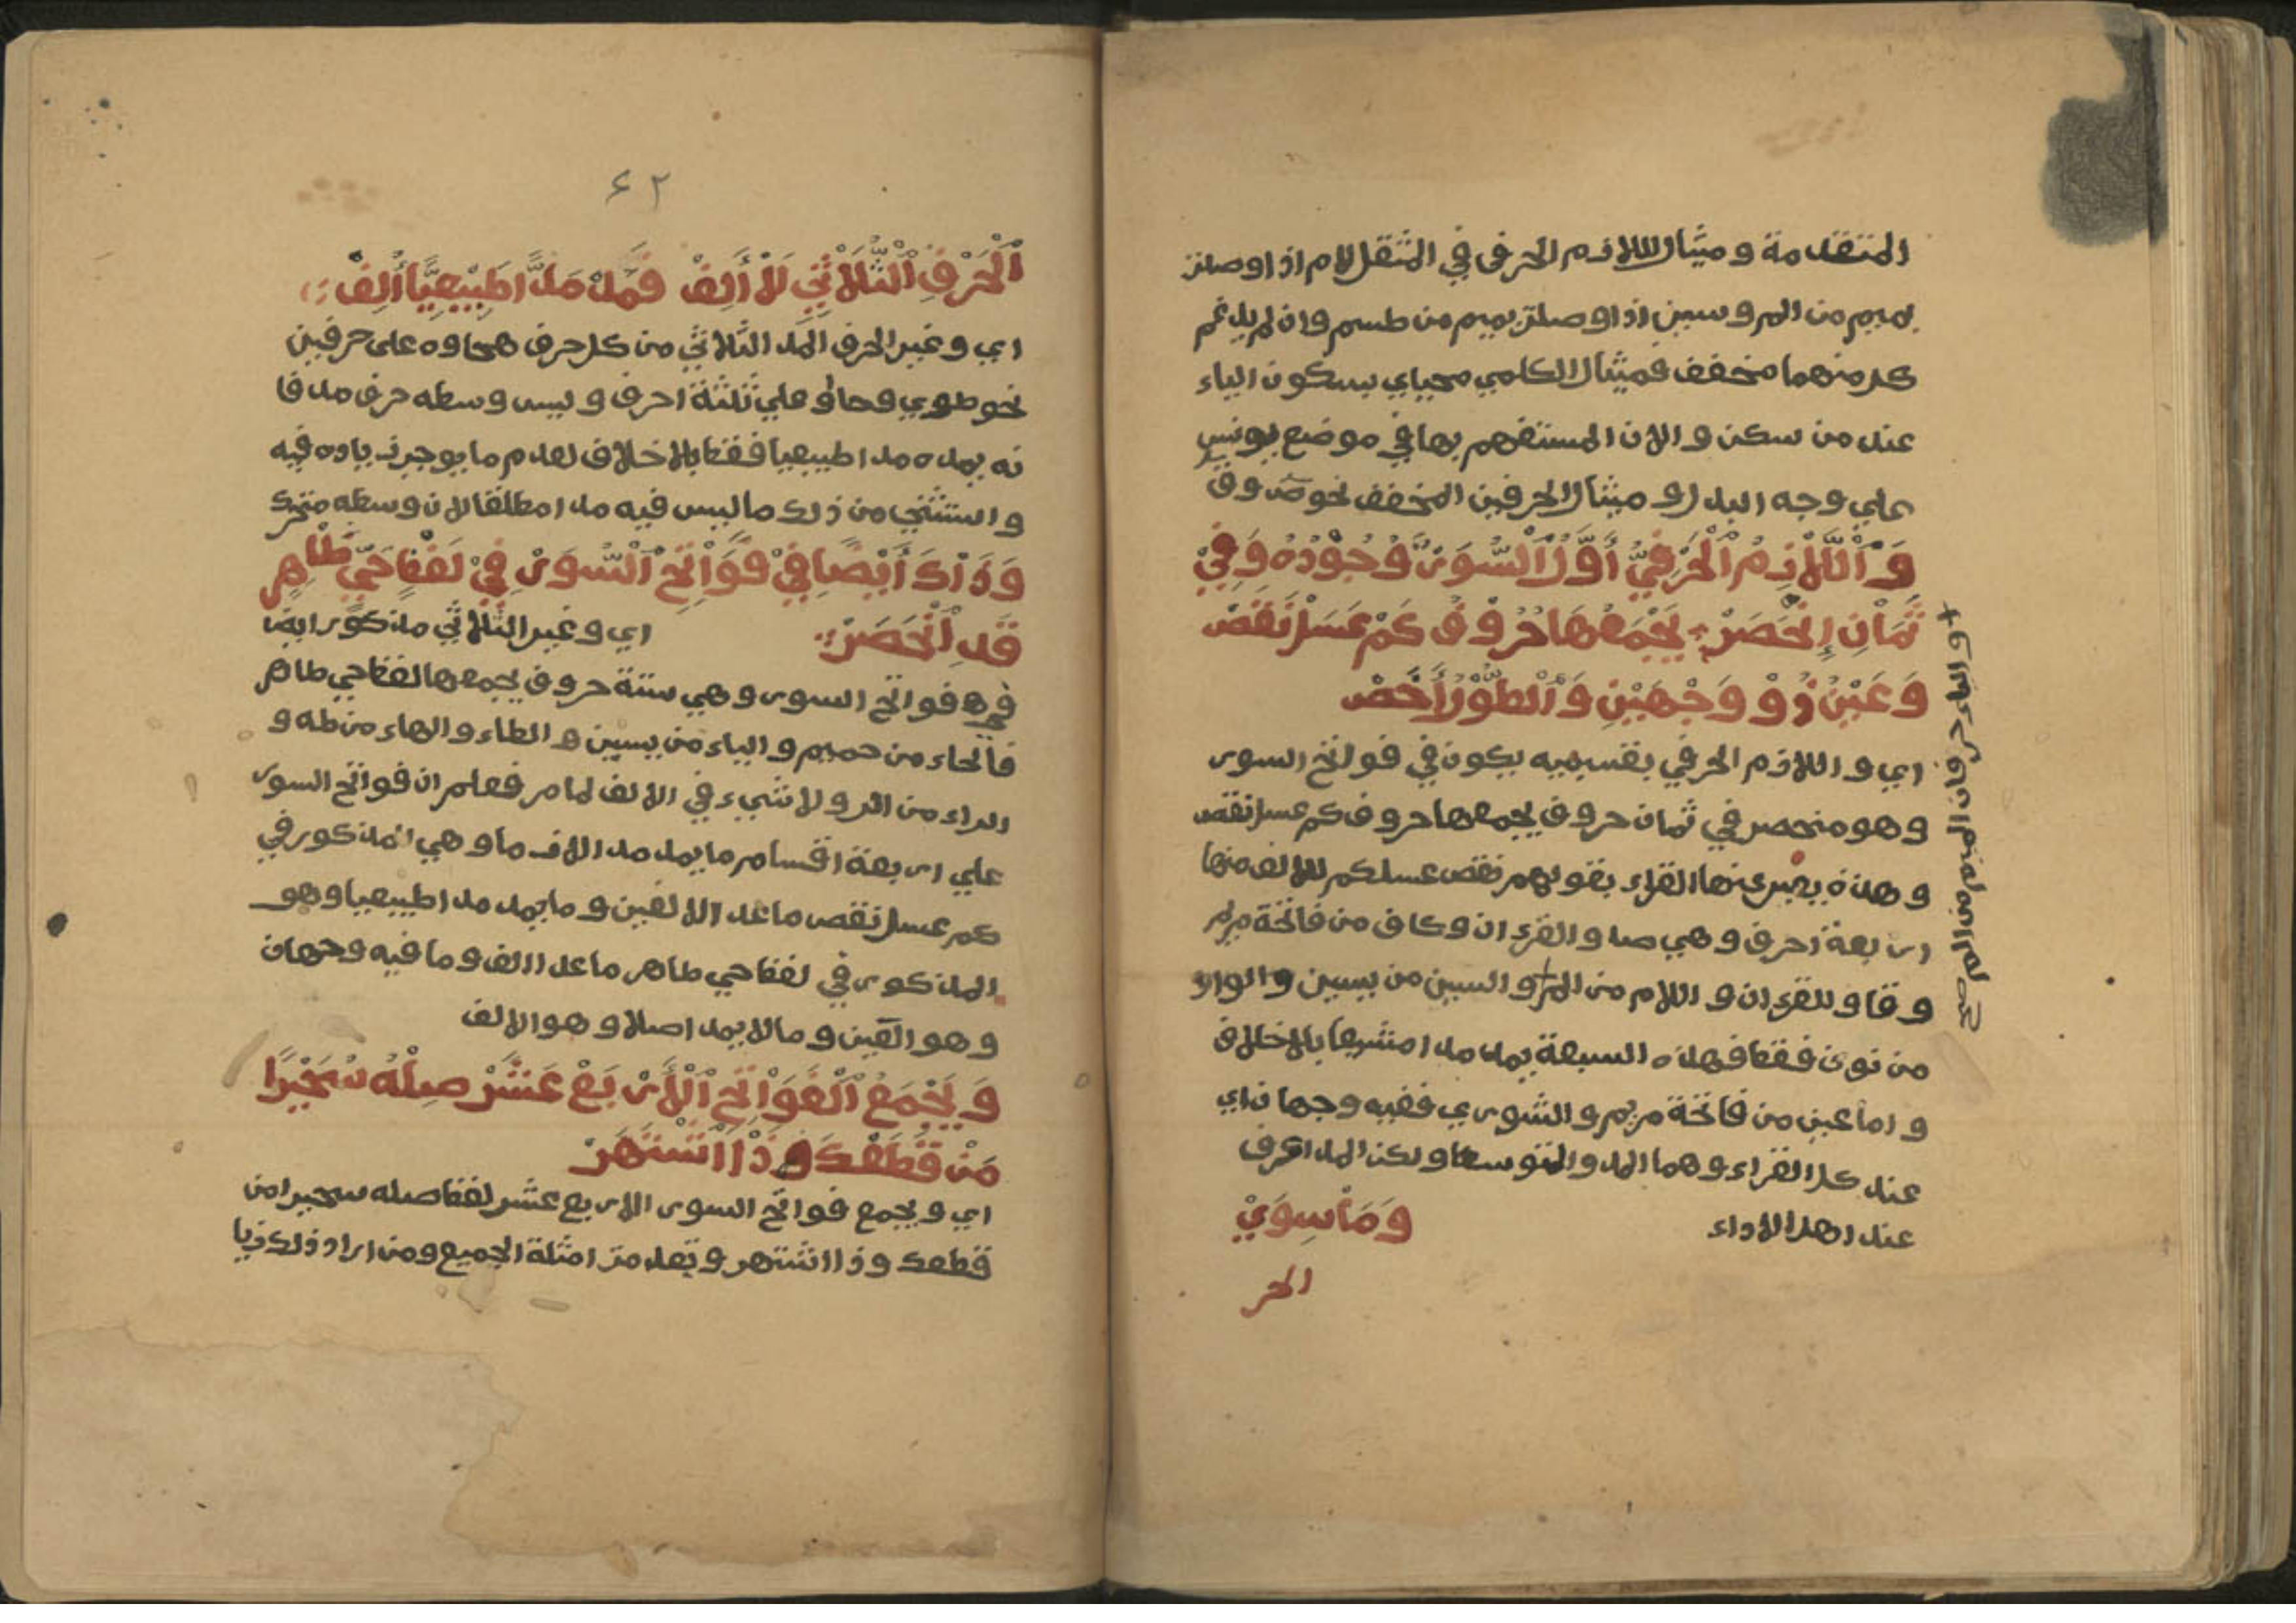 المتقدمة ومثال اللازم الحرفي في المثقل لام اذا وصلتز
بميم من المر وسين اذا وصلتز بميم من طسم وان لم يدغم
كل منهما مخفف فمثال الكلمي محياي بسكون الياء
عند من سكن والان المستفهم بها في موضع يونس
علي وجه البدل ومثال الحرفين المخفف نحو ص وق
وَاللَّازِمُ الْحَرْفِيُّ أَوَّلُ السُّوَرْ وُجُوْدُهُ وَفِيْ
ثَمَانِ إِنْحَصَرْ يَجْمَعُهَا حُرُوْفُ كَمْ عَسَلْ نَقَصْ
وَعَيْنُ ذُوْ وَجْهَيْنِ وَالطُّوْلُ أَخَصْ
اي واللازم الحرفي بقسيميه يكون في فواتح السور
وهو منحصر في ثمان حروف يجمعها حروف كم عسل نقص
وهذه يعبر عنها القراء بقولهم نقص عسلكم للالف منها
اربعة احرف وهي صاد والقرءان وكاف من فاتحة مريم
وقاف والقرءان واللام من الم والسين من يسين والواو
من نون فقط فهذه السبعة يمد مدا مشبعا بالاخلاف
واما عين من فاتحة مريم والشوري ففيه وجهان اي
عند كل القراء وهما المد والتوسط ولكن المد اعرف
عند اهل الاداء
وَمَا سِوَيْ
الحر
٤٢
الْحَرْفِ الثُّلَاثِيْ لَا أَلِفْ فَمَدُّ مَدًّا طَبِيْعِيًّا أُلِفْ
اي وغير الحرف المد الثلاثي من كل حرف هجاوه على حرفين
نحو طوي وحا او علي ثلثة احرف وليس وسطه حرف مد فا
نه يمده مدا طبيعيا فقط بالاخلاف لعدم ما يوجب زياده فيه
واستثني من ذلك ما ليس فيه مد امطلقا لان وسطه متحرك
وَذَاكَ أَيْضًا فِيْ فَوَاتِحِ السُّوَرْ فِيْ لَفْظِ حَيٍّ طَاهِرٍ
قَدِ انْحَصَرْ
اي وغير الثلاثي مذكور ايضا
فيها فواتح السور وهي ستة حروف يجمعها لفظ حي طاهر
فالحاء من حميم والياء من يسين والطاء والهاء من طه و
الراء من الر ولا شيء في الالف لما مر فعلم ان فواتح السور
علي اربعة اقسام ما يمد مد اللازما وهي المذكور في
كم عسل نقص ماعدا الالفين وما يمد مدا طبيعيا وهو
المذكور في لفظ حي طاهر ماعدا الف وما فيه وجهان
وهو العين وما لا يمد اصلا وهو الالف
وَيَجْمَعُ الْفَوَاتِحَ الْأَرْبَعْ عَشَرْ صِلْهُ سُحَيْرًا
مَنْ قَطَعْكَ ذَا اشْتَهَرْ
اي ويجمع فواتح السور الاربع عشر لفظ صله سحيرا من
قطعك وذا اشتهر وتقدمت امثلة الجميع ومن اراد ذلك فيا